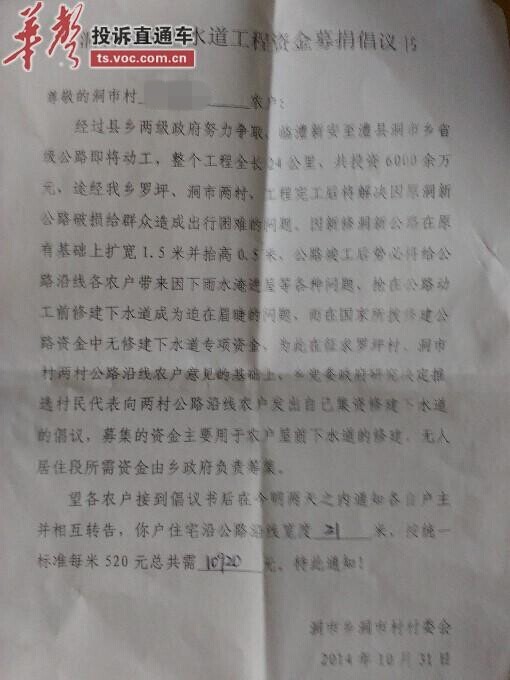 华声 投诉直通车
ts.voc.com.cn
水道工程资金募捐倡议书
尊敬的涧市村 农户:
经过县乡两级政府努力争取、临澧新安至澧县涧市乡省
级公路即将动工,整个工程全长24公里、共投资6000余万
元、途经我乡罗坪、涧市两村、工程完工后将解决因原涧新
公路破损给群众造成出行困难的问题、因新修涧新公路在原
有基础上扩宽1.5米并抬高0.5米、公路竣工后势必将给公
路沿线各农户带来因下雨水淹进屋等各种问题、抢在公路动
工前修建下水道成为迫在眉睫的问题、而在国家所拨修建公
路资金中无修建下水道专项资金、为此在征求罗坪村、涧市
村两村公路沿线农户意见的基础上、乡党委政府研究决定推
选村民代表向两村公路沿线农户发出自己集资修建下水道
的倡议,募集的资金主要用于农户屋前下水道的修建、无人
居住段所需资金由乡政府负责筹集。
望各农户接到倡议书后在今明两天之内通知各自户主
并相互转告,你户住宅沿公路沿线宽度 21 米、按统一
标准每米520元总共需 10920 元、特此通知!
涧市乡涧市村村委会
2014年10月31日